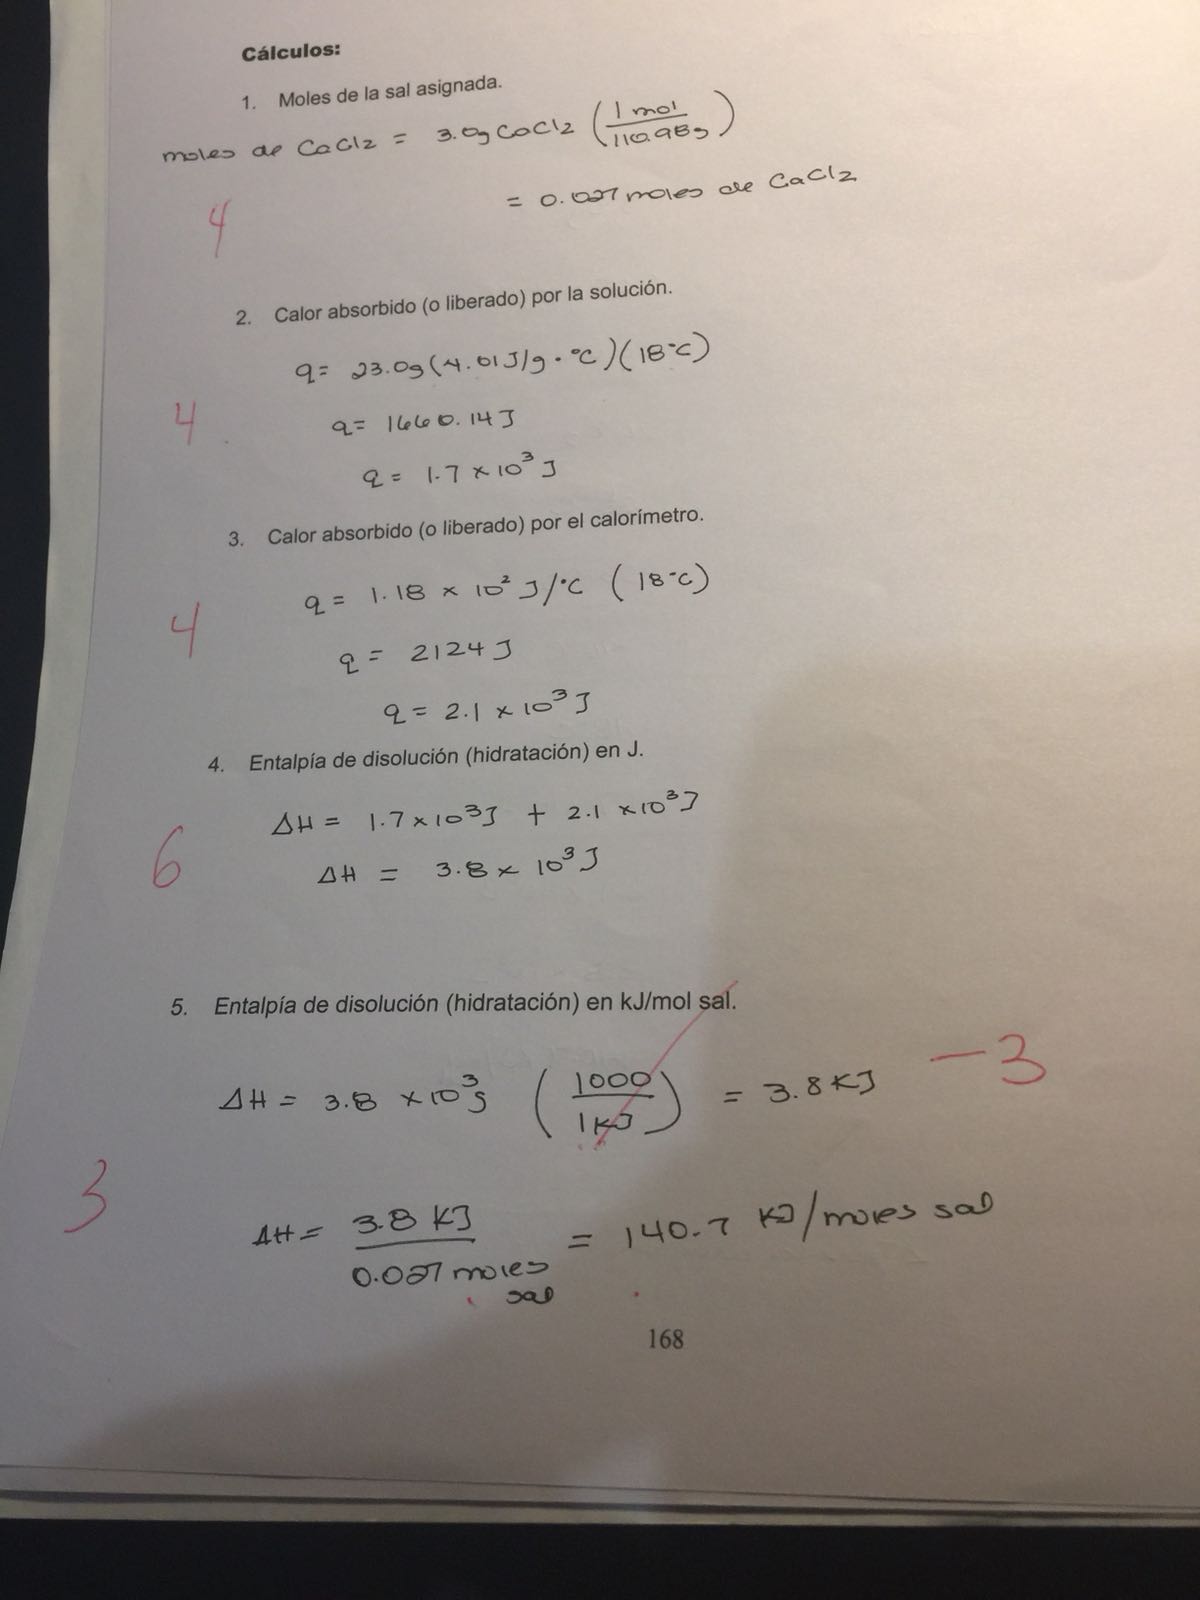 Cálculos:
1. Moles de la sal asignada.
moles de CaCl2 = 3.0g CaCl2 (1 mol / 110.98g)
= 0.027 moles de CaCl2
4
2. Calor absorbido (o liberado) por la solución.
q = 23.0g (4.01 J/g · °C) (18°C)
q = 1660.14 J
4
q = 1.7 × 10³ J
3. Calor absorbido (o liberado) por el calorímetro.
q = 1.18 × 10² J/°C (18°C)
4
q = 2124 J
q = 2.1 × 10³ J
4. Entalpía de disolución (hidratación) en J.
ΔH = 1.7 × 10³ J + 2.1 × 10³ J
6
ΔH = 3.8 × 10³ J
5. Entalpía de disolución (hidratación) en kJ/mol sal.
ΔH = 3.8 × 10³ J (1000 / 1 KJ) = 3.8 KJ
-3
3
ΔH = 3.8 KJ / 0.027 moles sal = 140.7 KJ/moles sal
168